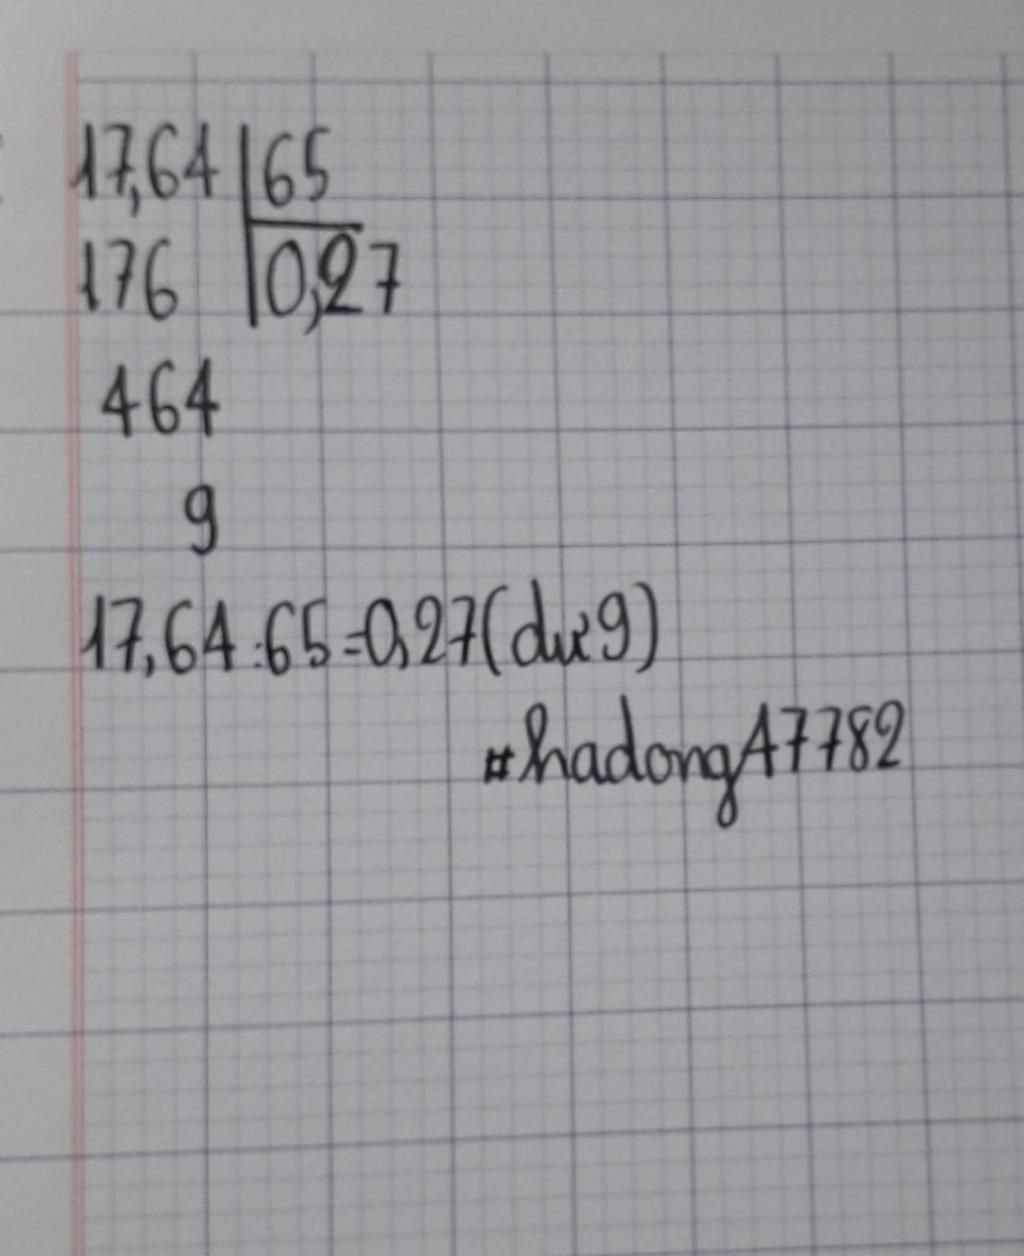 17,64 65
176 0,27
464
9
17,64:65=0,27(dư 9)
#hadong47782